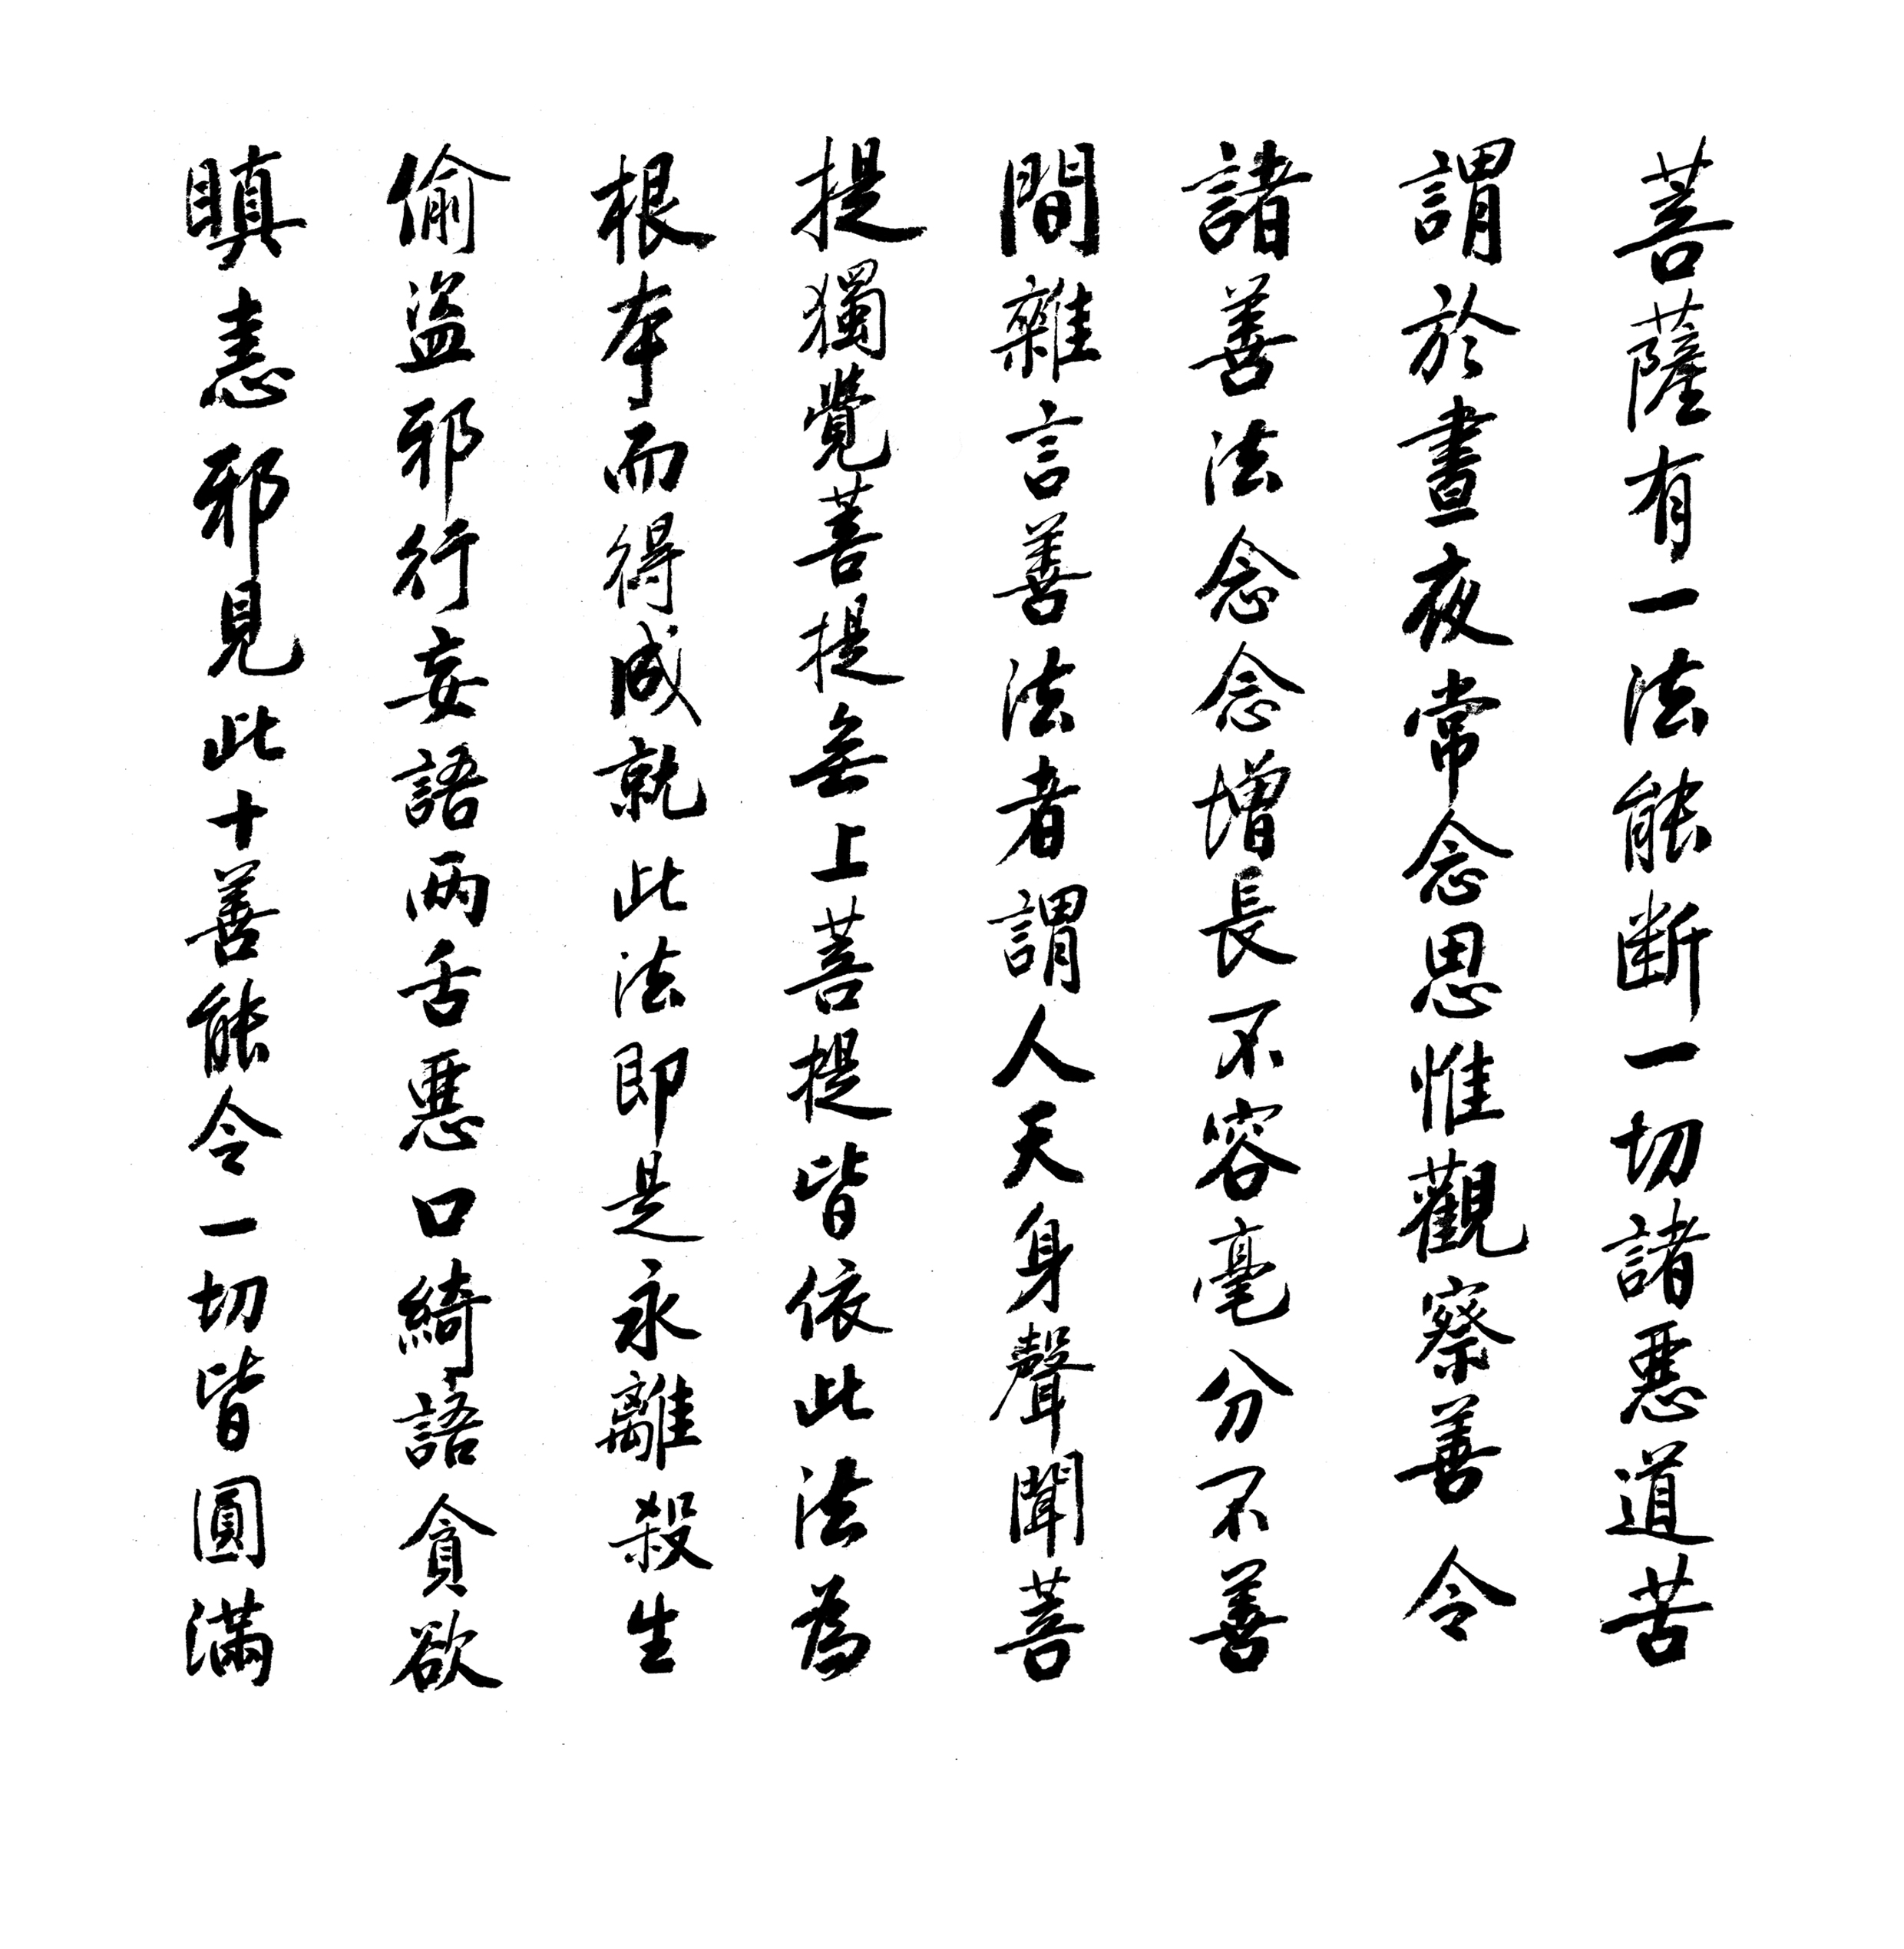 菩薩有一法能断一切諸悪道苦
謂於晝夜常念思惟觀察善令
諸善法念念增長不容毫分不善
間雜言善法者謂人天身聲聞菩
提獨覺菩提無上菩提皆依此法為
根本而得成就此法即是永離殺生
偷盗邪行妄語兩舌悪口綺語貪欲
瞋恚邪見此十善能令一切皆圓滿